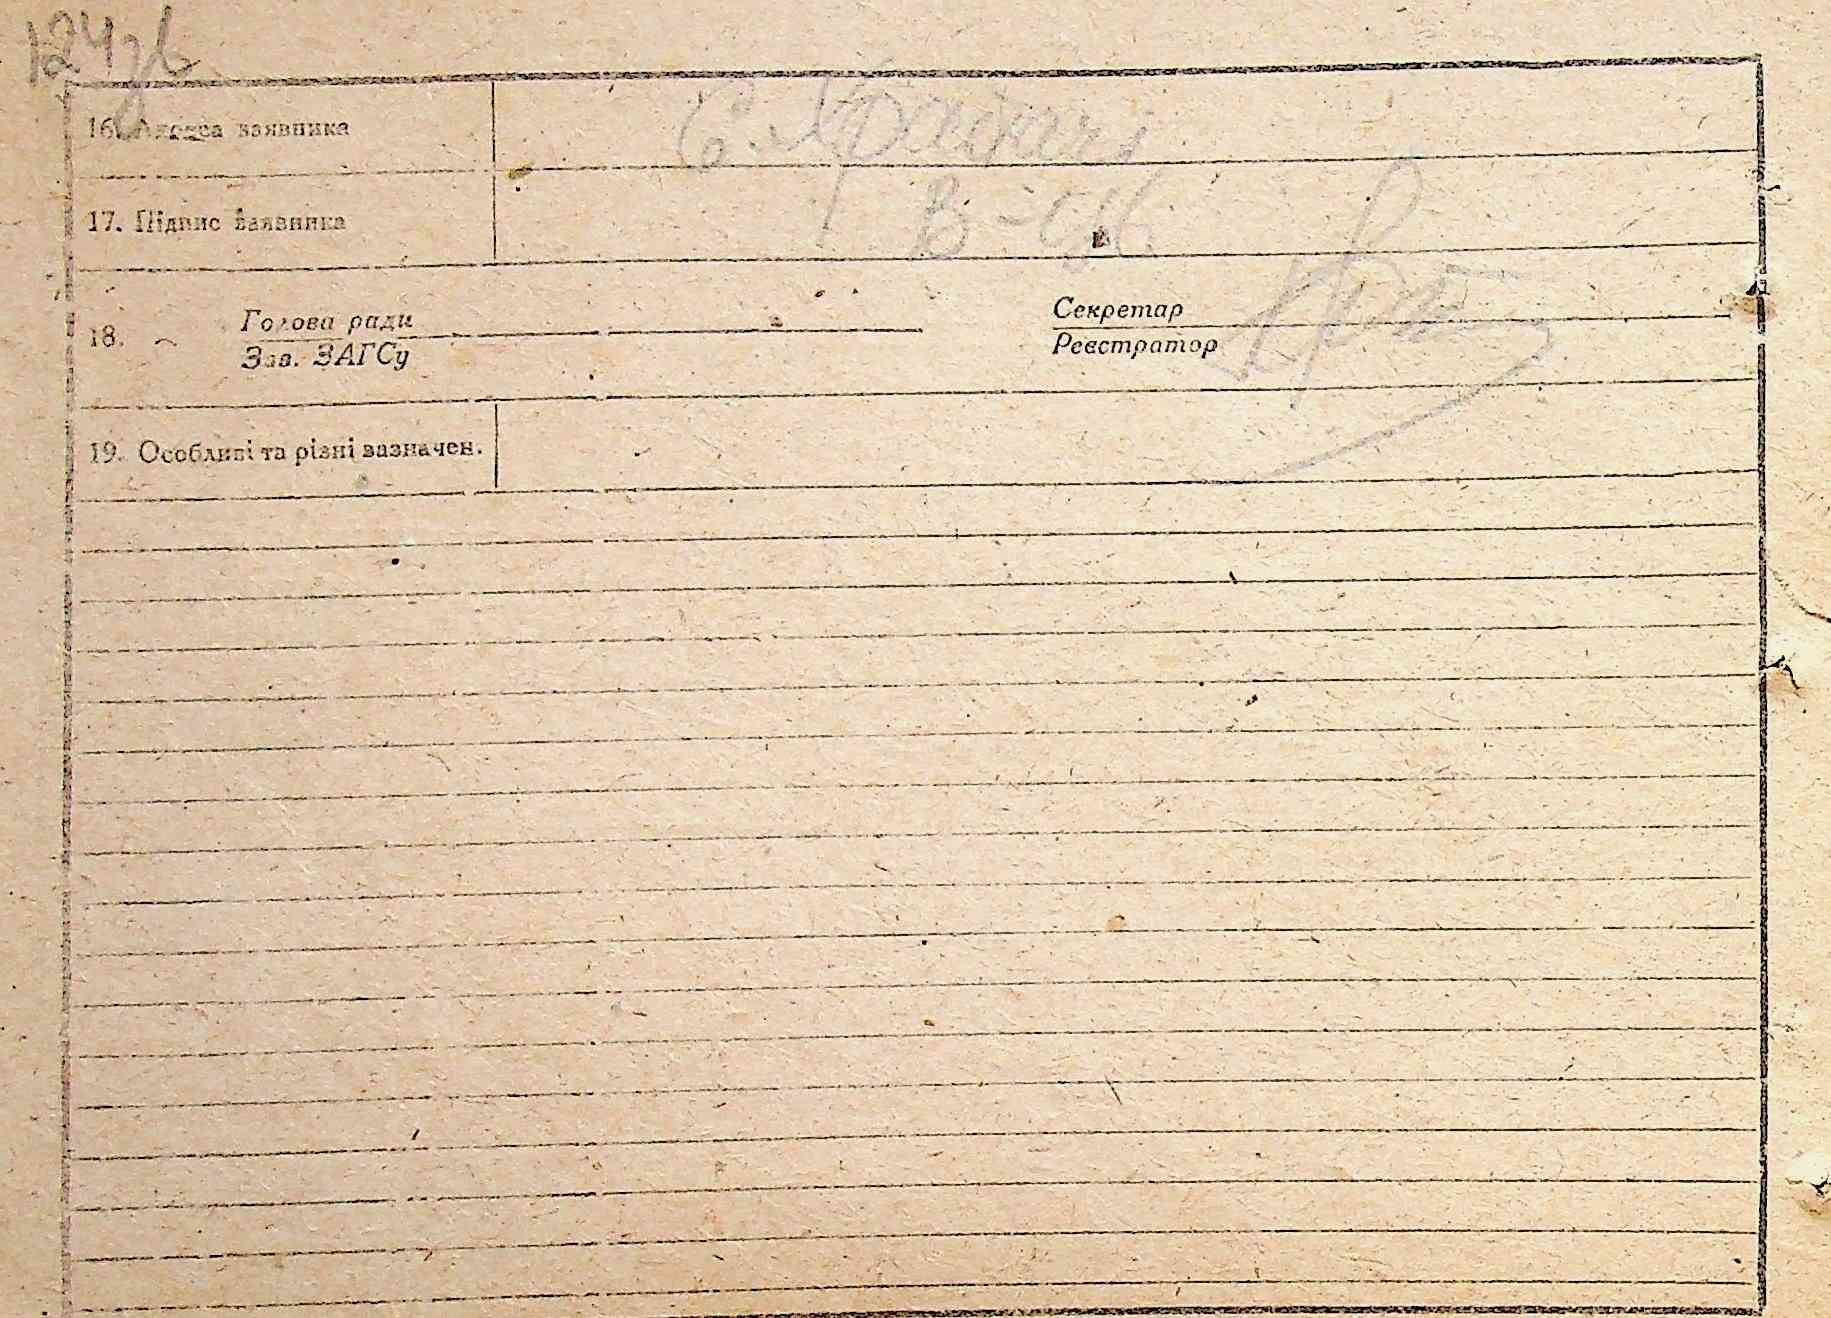 124зв
16. Адреса заявника
с.
17. Підпис заявника
18. Голова ради
Зав. ЗАГСу
Секретар
Реєстратор
19. Особливі та різні зазначен.